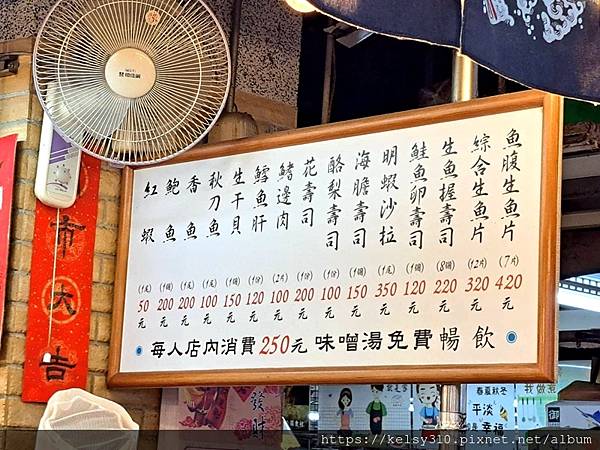 魚腹生魚片 (7片) 420元
綜合生魚片 (12片) 320元
生魚握壽司 (8個) 220元
鮭魚卵壽司 (1個) 120元
明蝦沙拉 (1尾) 350元
海膽壽司 (1個) 150元
酪梨壽司 (1個) 100元
花壽司 (1份) 200元
鰭邊肉 (2片) 100元
鱈魚肝 (1份) 120元
生干貝 (1個) 150元
秋刀魚 (1尾) 100元
香魚 (1尾) 200元
鮑魚 (1個) 200元
紅蝦 (1尾) 50元
每人店內消費250元 味噌湯免費暢飲
市大吉
發財
春夏秋冬
平淡
幸福
御
https://kelsy310.pixnet.net/album